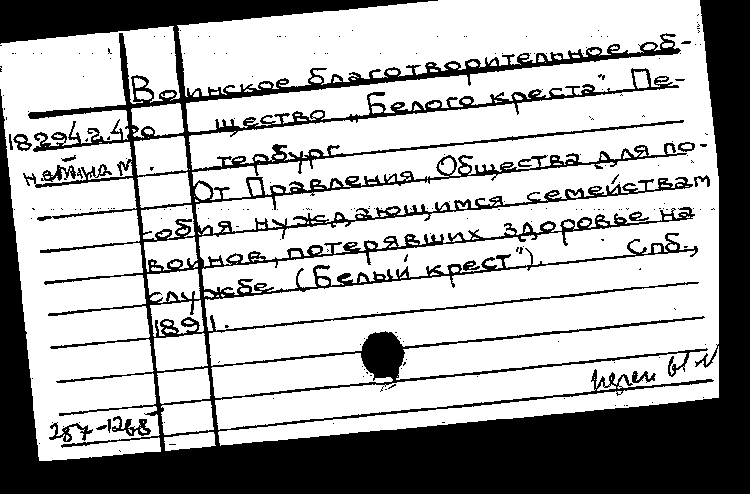 Воинское благотворительное об-
щество „Белого креста". Пе-
18.294.2.420
тербург
От Правления „Общества для по-
собия нуждающимся семействам
воинов, потерявших здоровье на
службе. (Белый крест"). Спб.,
1891.
287-1268